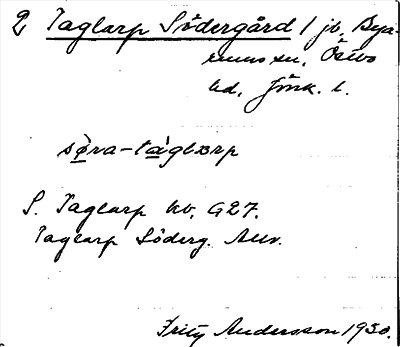 2 Taglarp Södergård / jb, Bya-
rums sn, Östbo
hd, Jönk. l.
sø̀ra-tàglarp
S. Taglarp kv. G27.
Taglarp Söderg. Auv.
Fritz Andersson 1930.